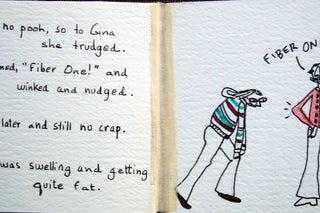 no pooh, so to Gina
she trudged.
med, "Fiber One!" and
winked and nudged.
later and still no crap.
was swelling and getting
quite fat.
FIBER ON